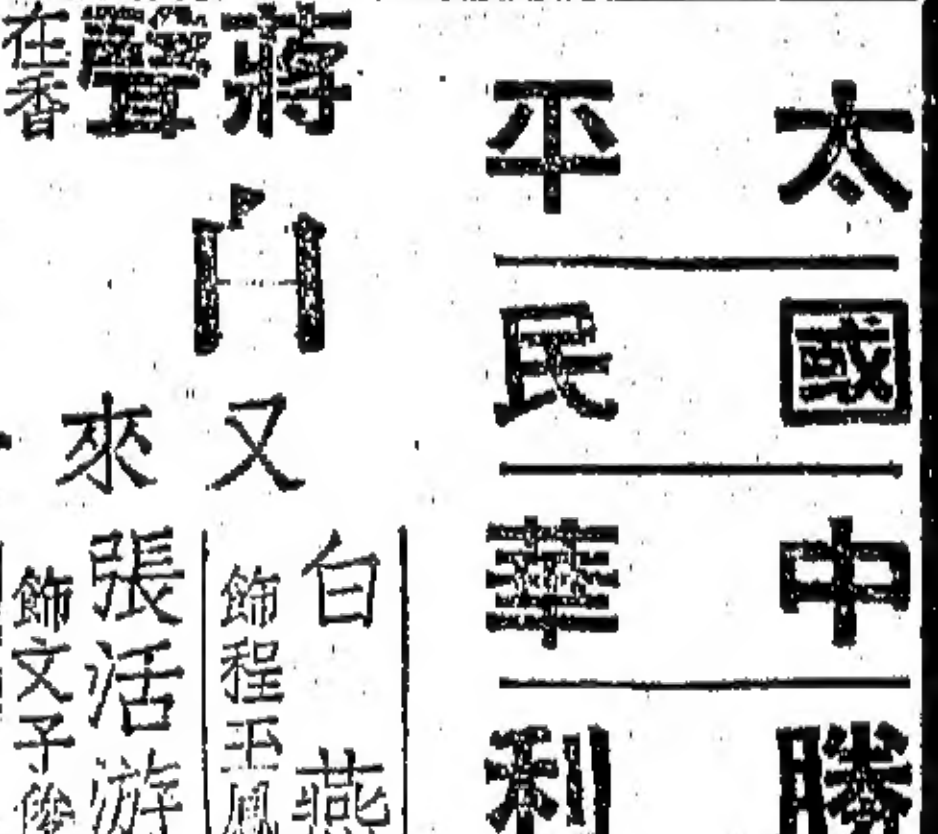 太平
國民
中華
勝利
蔣
在香
又來
白燕
飾程玉鳳
張活游
飾文子俊